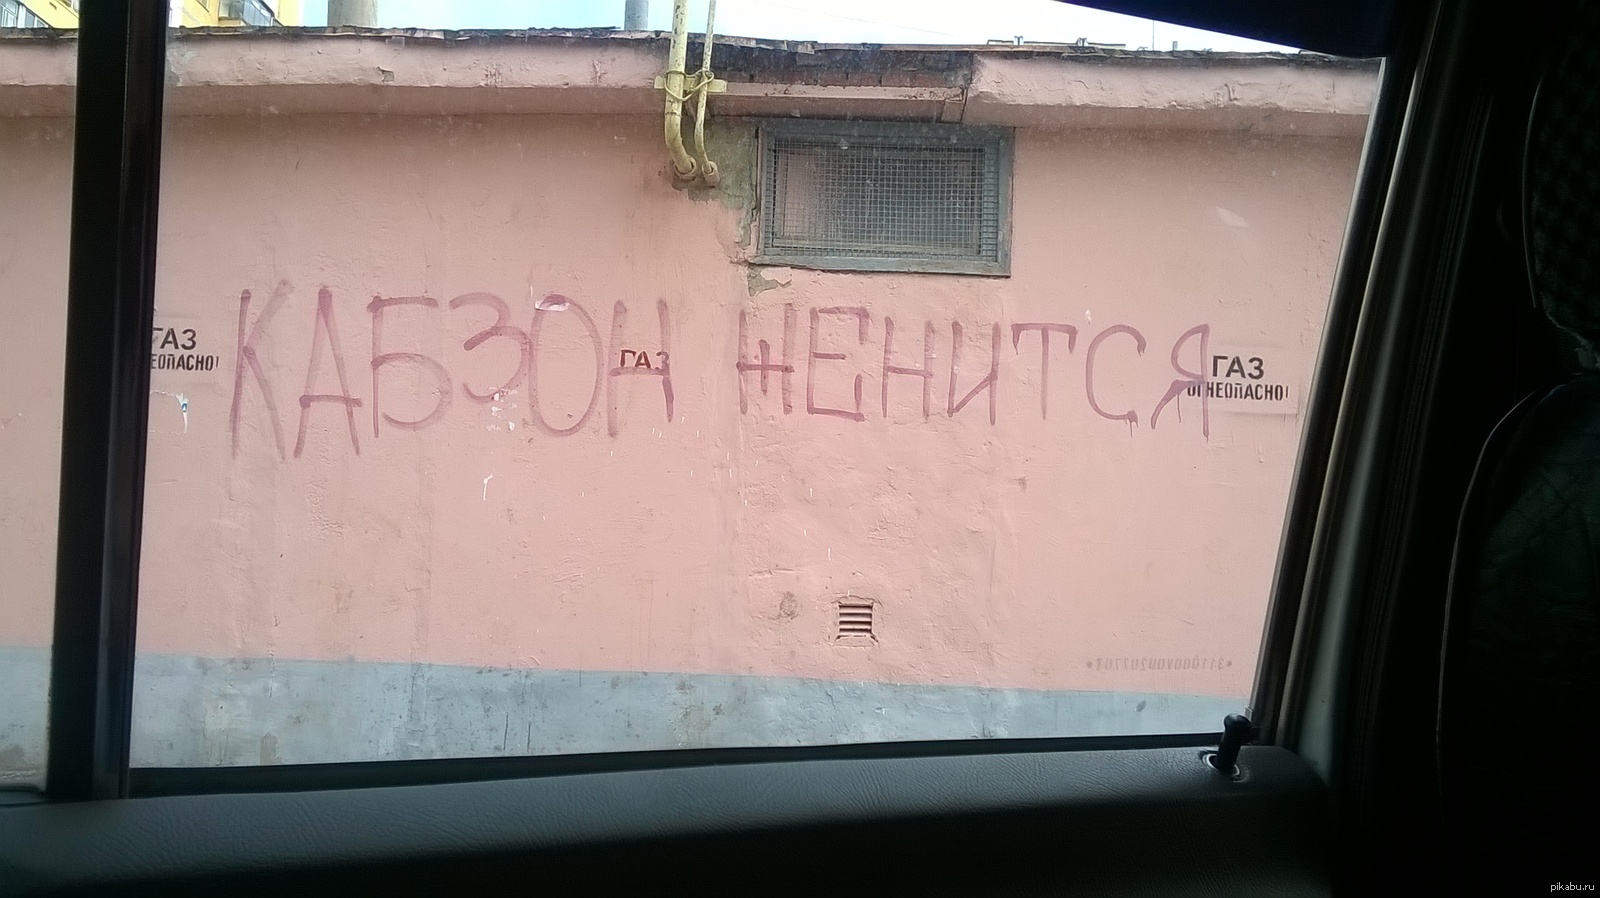 ГАЗ
ЕОПАСНО!
КАБЗОН ЖЕНИТСЯ
ГАЗ
ГАЗ
ОГНЕОПАСНО!
pikabu.ru